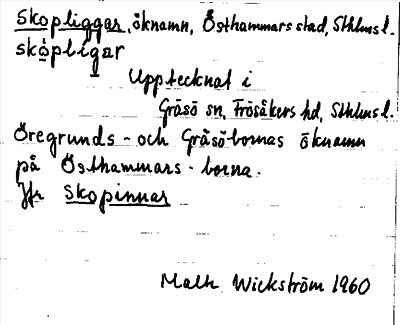 Skopliggar, öknamn, Östhammars stad, Sthlmsl.
skòpligar
Upptecknat i
Gräsö sn, Frösåkers hd, Sthlmsl.
Öregrunds- och Gräsöbornas öknamn
på Östhammars-borna.
Jfr Skopinnar
Malte Wickström 1960